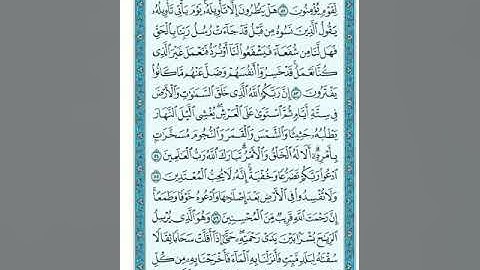 لِقَوْمٍ يُؤْمِنُونَ ۝٥٢ هَلْ يَنظُرُونَ إِلَّا تَأْوِيلَهُۥ ۚ يَوْمَ يَأْتِى تَأْوِيلُهُۥ
يَقُولُ ٱلَّذِينَ نَسُوهُ مِن قَبْلُ قَدْ جَآءَتْ رُسُلُ رَبِّنَا بِٱلْحَقِّ
فَهَل لَّنَا مِن شُفَعَآءَ فَيَشْفَعُوا۟ لَنَآ أَوْ نُرَدُّ فَنَعْمَلَ غَيْرَ ٱلَّذِى
كُنَّا نَعْمَلُ ۚ قَدْ خَسِرُوٓا۟ أَنفُسَهُمْ وَضَلَّ عَنْهُم مَّا كَانُوا۟
يَفْتَرُونَ ۝٥٣ إِنَّ رَبَّكُمُ ٱللَّهُ ٱلَّذِى خَلَقَ ٱلسَّمَٰوَٰتِ وَٱلْأَرْضَ
فِى سِتَّةِ أَيَّامٍ ثُمَّ ٱسْتَوَىٰ عَلَى ٱلْعَرْشِ يُغْشِى ٱلَّيْلَ ٱلنَّهَارَ
يَطْلُبُهُۥ حَثِيثًا وَٱلشَّمْسَ وَٱلْقَمَرَ وَٱلنُّجُومَ مُسَخَّرَٰتٍۭ
بِأَمْرِهِۦٓ ۗ أَلَا لَهُ ٱلْخَلْقُ وَٱلْأَمْرُ ۗ تَبَارَكَ ٱللَّهُ رَبُّ ٱلْعَٰلَمِينَ ۝٥٤
ٱدْعُوا۟ رَبَّكُمْ تَضَرُّعًا وَخُفْيَةً ۚ إِنَّهُۥ لَا يُحِبُّ ٱلْمُعْتَدِينَ ۝٥٥
وَلَا تُفْسِدُوا۟ فِى ٱلْأَرْضِ بَعْدَ إِصْلَٰحِهَا وَٱدْعُوهُ خَوْفًا وَطَمَعًا ۚ
إِنَّ رَحْمَتَ ٱللَّهِ قَرِيبٌ مِّنَ ٱلْمُحْسِنِينَ ۝٥٦ وَهُوَ ٱلَّذِى يُرْسِلُ
ٱلرِّيَٰحَ بُشْرًۢا بَيْنَ يَدَىْ رَحْمَتِهِۦ ۖ حَتَّىٰٓ إِذَآ أَقَلَّتْ سَحَابًا ثِقَالًا
سُقْنَٰهُ لِبَلَدٍ مَّيِّتٍ فَأَنزَلْنَا بِهِ ٱلْمَآءَ فَأَخْرَجْنَا بِهِۦ مِن كُلِّ